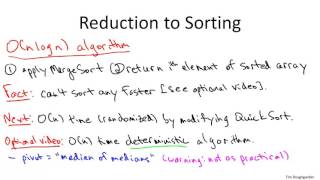 Reduction to Sorting
O(nlogn) algorithm
① apply MergeSort ② return ith element of sorted array
Fact: can't sort any faster [see optional video].
Next: O(n) time (randomized) by modifying QuickSort.
Optional video: O(n) time deterministic algorithm.
- pivot = "median of medians" (warning: not as practical)
Tim Roughgarden